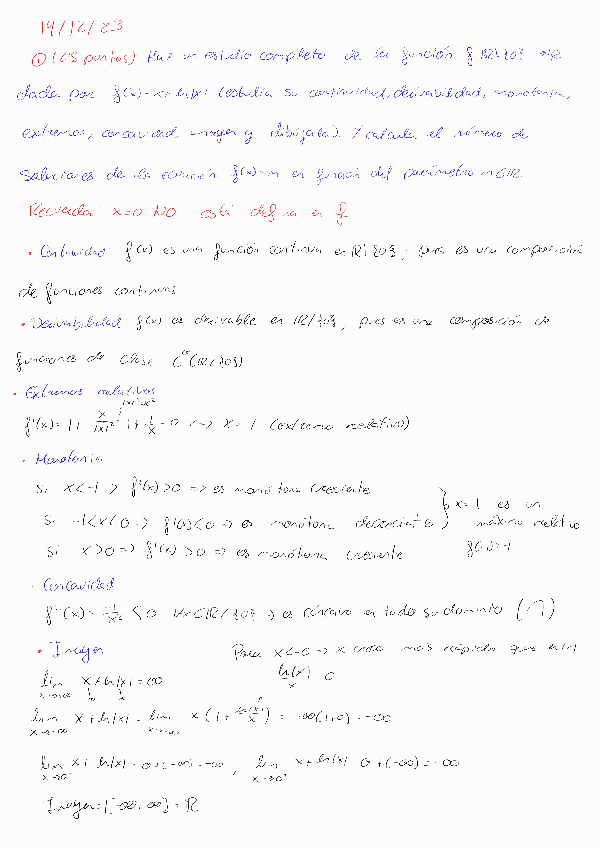 19/12/23
① (2'5 puntos) Haz un estudio completo de la función f: ℝ\{0} → ℝ
dada por f(x)=x+ln|x| (estudia su continuidad, derivabilidad, monotonía,
extremos, concavidad, imagen y dibújala). Y calcula el número de
soluciones de la ecuación f(x)=m en función del parámetro m∈ℝ.
Recuerda: x=0 NO está definida en f.
• Continuidad f(x) es una función continua en ℝ\{0}, pues es una composición
de funciones continuas
• Derivabilidad f(x) es derivable en ℝ/{0}, pues es una composición de
funciones de clase C^∞(ℝ/{0})
• Extremos relativos
|x|²=x²
f'(x)= 1+ x/|x|² = 1+ 1/x = 0 <-> x=-1 (extremo relativo)
• Monotonía
Si x<-1 → f'(x)>0 => es monótona creciente
Si -1<x<0 => f'(x)<0 => es monótona decreciente } x=-1 es un máximo relativo
Si x>0 => f'(x)>0 => es monótona creciente f(-1)=-1
• Concavidad
f''(x)= -1/x² <0 ∀x∈ℝ/{0} => es cóncava en todo su dominio (∩)
• Imagen Para x<-0 => x crece más rápido que ln
lim x→∞ x+ln|x| = ∞ ln|x|/x 0
lim x→-∞ x+ln|x| = lim x→-∞ x(1+ ln|x|/x) = -∞(1+0) = -∞
lim x→0⁻ x+ln|x| = 0+(-∞) = -∞, lim x→0⁺ x+ln|x| 0+(-∞) = -∞
Imagen=[-∞,∞]=ℝ